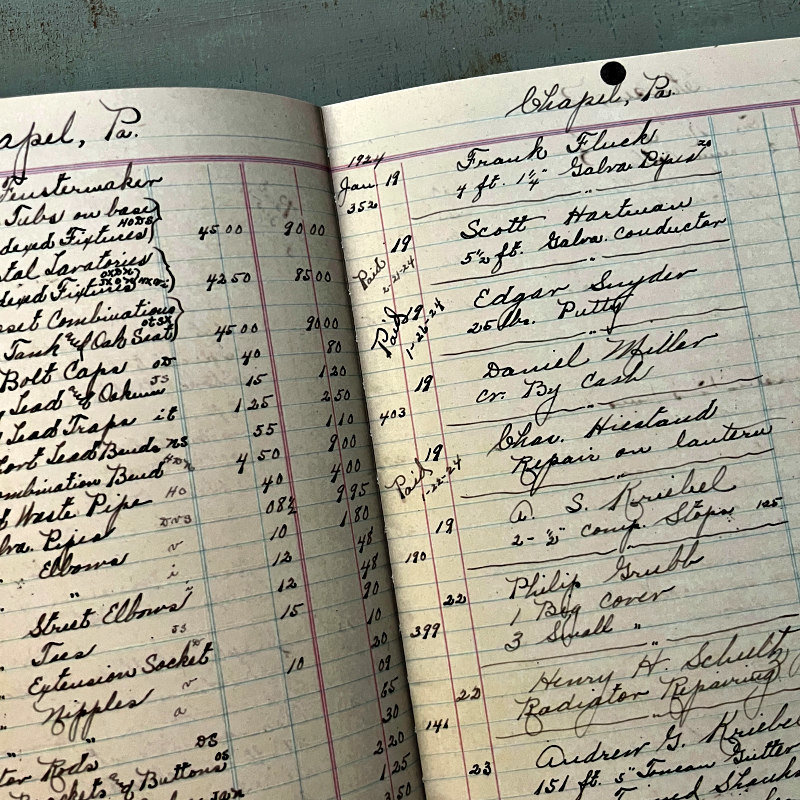 apel, Pa.
Fenstermaker
Tubs on base
dexed Fixtures 45 00 90 00
tal Lavatories
dexed Fixtures 42 50 85 00
oset Combinations
Tank & Oak Seat 45 00 90 00
Bolt Caps 40 80
Lead & Oakum 15 1 20
Lead Traps 1 25 2 50
ort Lead Bends 55 1 10
ombination Bend 4 50 9 00
Waste Pipe 40 4 00
lva. Pipes 08½ 9 95
" Elbows 10 1 80
" " 12 48
Street Elbows 12 48
" Tees 15 90
" Extension Socket 10 10
" Nipples 20
" " 09
65
30
tor Rods 2 20
Brackets & Buttons 1 25
3 50
Chapel, Pa.
1924
Jan 19 Frank Fluck
352 4 ft. 1¼" Galva Pipes 20
"
19 Scott Hartman
Paid 2-21-24 5½ ft. Galva. Conductor
"
Paid 19 Edgar Snyder
1-26-24 25 lbs. Putty
"
19 Daniel Miller
403 Cr. By Cash
"
19 Chas. Hiestand
Paid 1-22-24 Repair on lantern
"
19 A. S. Kriebel
190 2- ½" Comp. Stops 125
"
22 Philip Grubb
399 1 Big Cover
3 Small "
"
22 Henry H. Schultz
141 Radiator Repairing
"
23 Andrew G. Kriebel
151 ft. 5" Toncan Gutter
Shanks